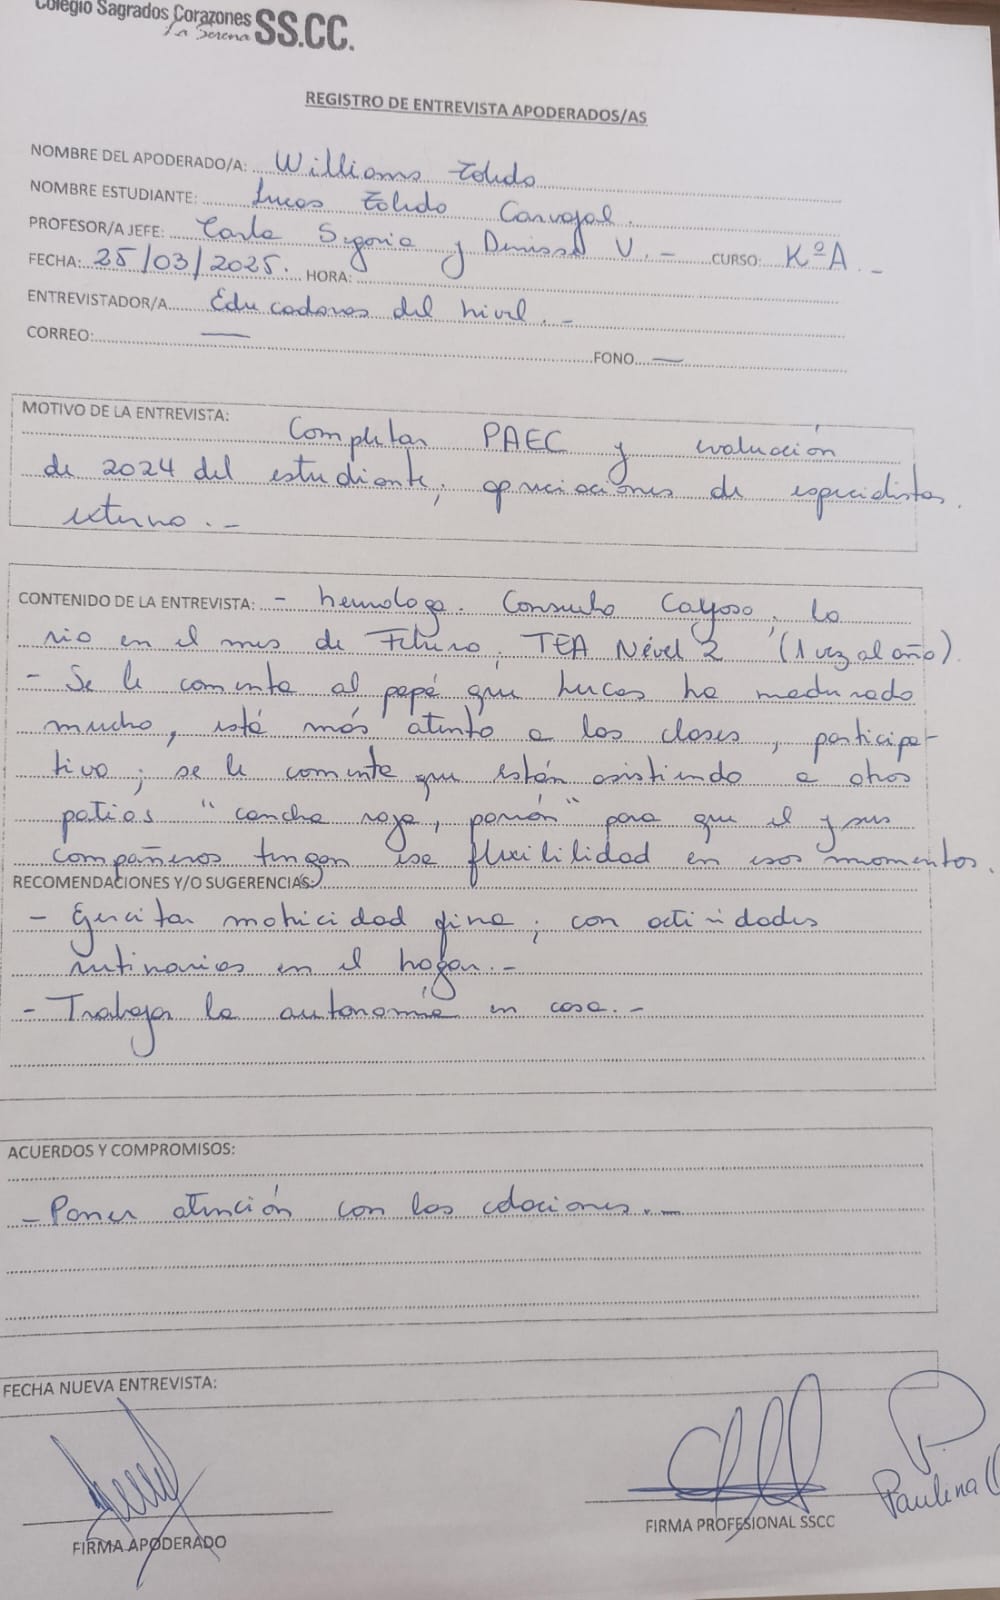 Colegio Sagrados Corazones
La Serena SS.CC.
REGISTRO DE ENTREVISTA APODERADOS/AS
NOMBRE DEL APODERADO/A: Williams Toledo
NOMBRE ESTUDIANTE: Lucas Toledo Carvajal.
PROFESOR/A JEFE: Carla Segovia y Denisse V. - CURSO: KºA. -
FECHA: 25/03/2025. HORA:
ENTREVISTADOR/A Educadoras del nivel. -
CORREO: —
FONO —
MOTIVO DE LA ENTREVISTA:
Completar PAEC y evaluación
de 2024 del estudiante, apreciaciones de especialistas
externo. -
CONTENIDO DE LA ENTREVISTA: - Consuelo Cayoso, lo
vio en el mes de Febrero, TEA Nével 2 (1 vez al año)
- Se le comenta al papá que Lucas ha madurado
mucho, está más atento a las clases, participa-
tivo; se le comenta que están asistiendo a otros
patios "cancha roja, parrón" para que el y sus
compañeros tengan esa flexibilidad en esos momentos.
RECOMENDACIONES Y/O SUGERENCIAS:
- Ejercitar motricidad fina, con actividades
rutinarias en el hogar. -
- Trabajar la autonomía en casa. -
ACUERDOS Y COMPROMISOS:
- Poner atención con las colaciones. -
FECHA NUEVA ENTREVISTA:
Paulina
FIRMA APODERADO
FIRMA PROFESIONAL SSCC